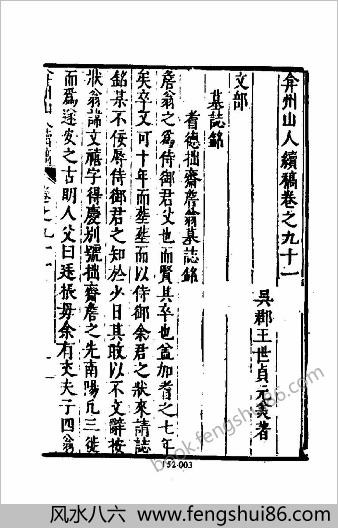 弇州山人續稿卷之九十一
吳郡王世貞元美著
文部
墓誌銘
耆德拙齋詹翁墓誌銘
詹翁之爲侍御君父也而賢其卒也蓋加耆之七年
矣卒又可十年而塟塟而以侍御余君之狀來請誌
銘某不佞辱侍御君之知於少日其敢以不文辭按
狀翁諱文禧字得慶别號拙齋詹之先南陽凡三徙
而爲遂安之古明人父曰廷振毋余有丈夫子四翁
弇州山人續稿
卷之九十一
一
152-003
book.fengshui86.com
风水八六 www.fengshui86.com